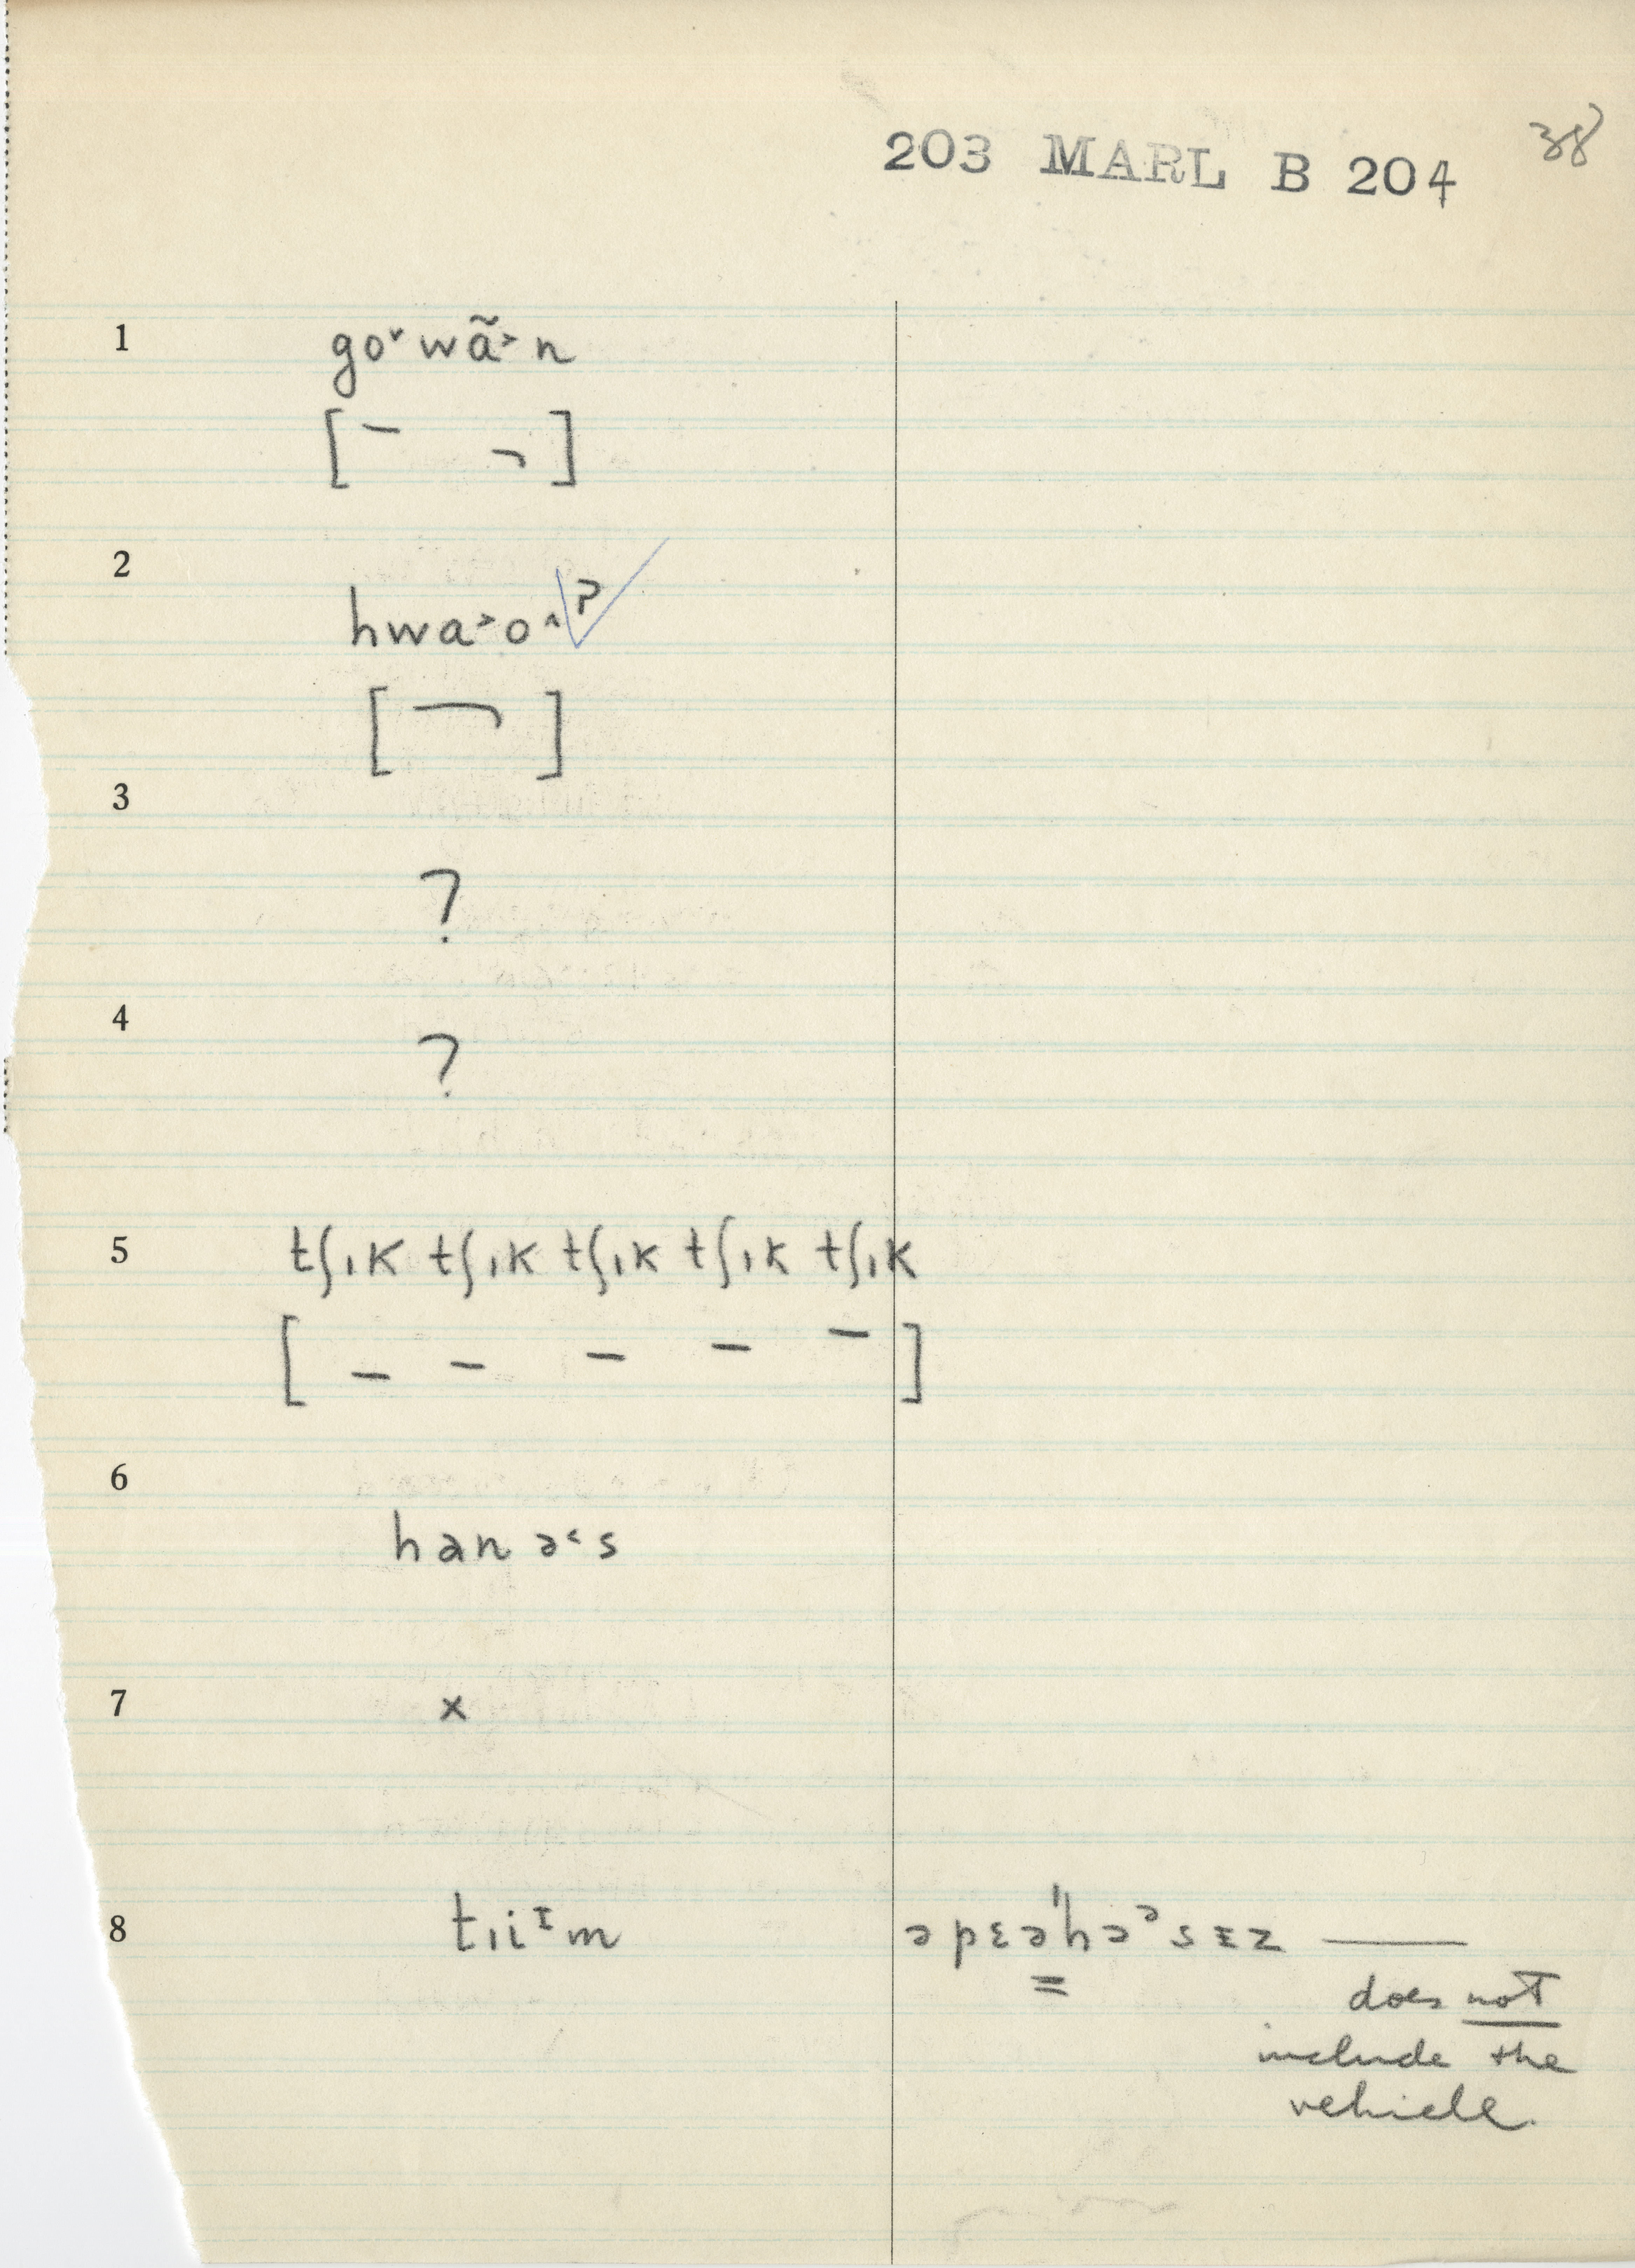 203 MARL B 204 38
1 go˅ wã˃ n
[ ¯ ¬ ]
2 hwa˃o˄ʔ
[ ¬ ]
3
?
4
?
5 tʃɪk tʃɪk tʃɪk tʃɪk tʃɪk
[ – – – – – ]
6
hanə˂s
7 x
8 tɪiᶦm əpɛəˈhəᵊsɪz ——
does not
include the
vehicle.